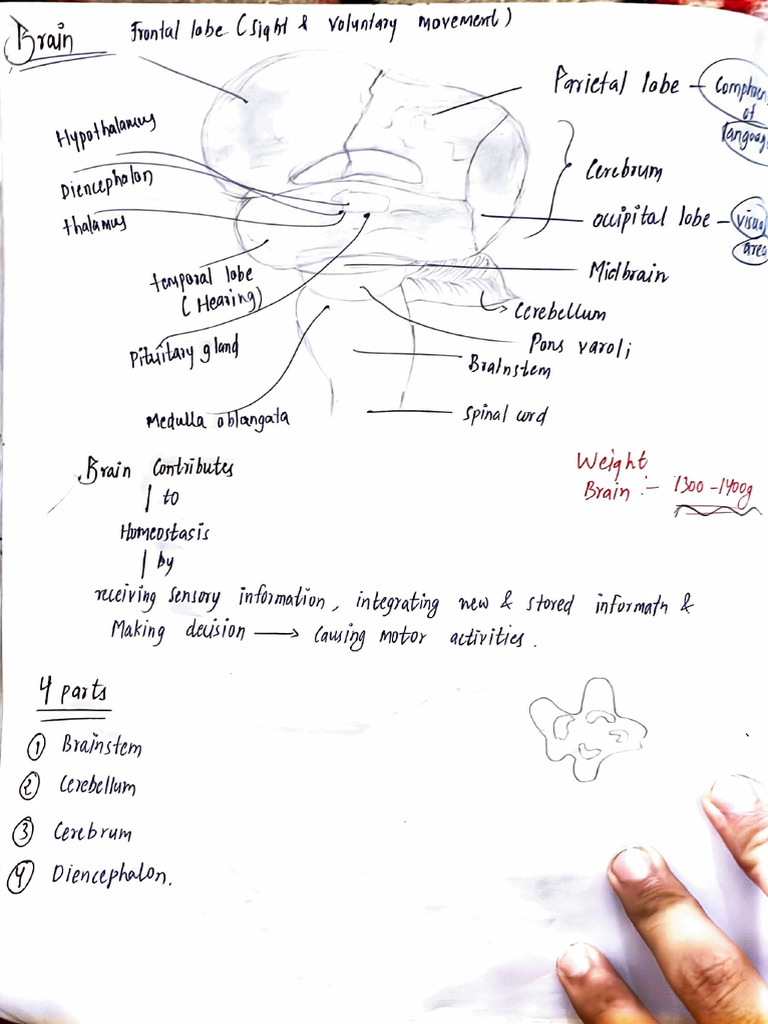 Brain
Frontal lobe (Sight & voluntary movement)
Parietal lobe –
of
Hypothalamus
Diencephalon
thalamus
Cerebrum
occipital lobe –
area
Midbrain
temporal lobe
(Hearing)
Cerebellum
Pons varoli
Pituitary gland
Brainstem
Medulla oblangata
Spinal cord
Brain contributes
to
Homeostasis
by
receiving sensory information, integrating new & stored informatn &
Making decision → causing motor activities.
Weight
Brain :- 1300-1400g
4 parts
① Brainstem
② Cerebellum
③ Cerebrum
④ Diencephalon.